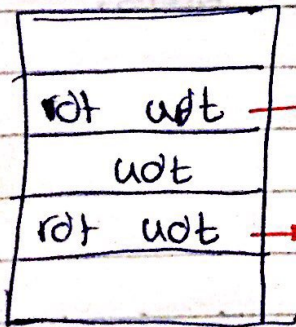 rdt udt
udt
rdt udt